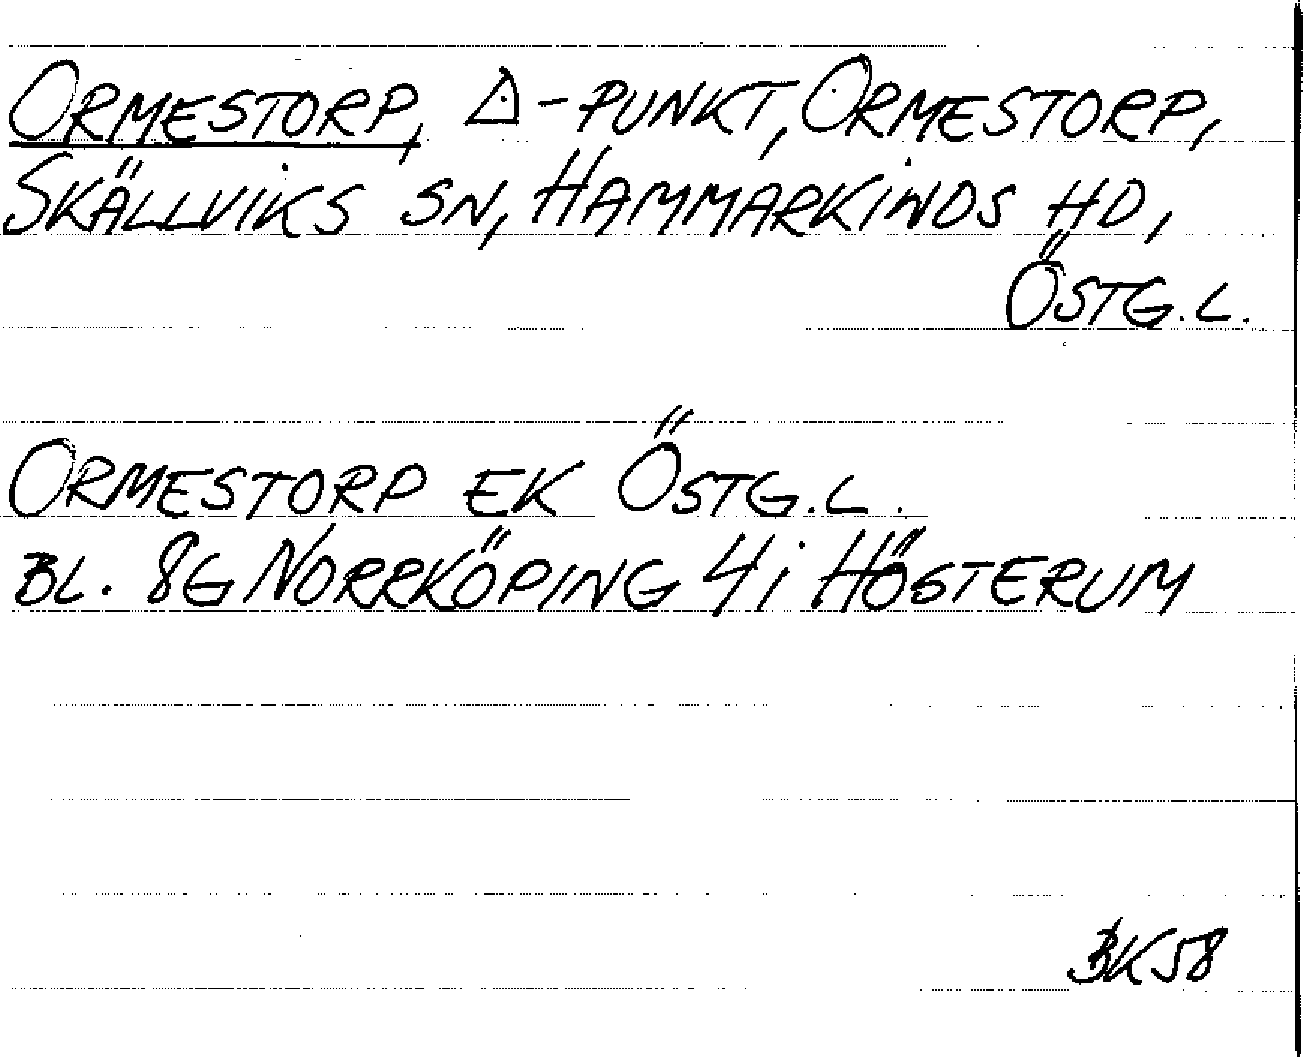 ORMESTORP, △-PUNKT, ORMESTORP,
SKÄLLVIKS SN, HAMMARKINDS HD,
ÖSTG.L.
ORMESTORP EK ÖSTG.L.
BL. 8G NORRKÖPING 4i HÖSTERUM
BK58